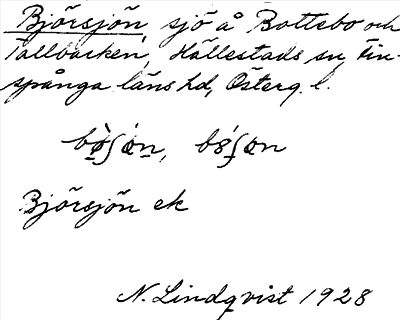 Björsjön, sjö å Bottebo och
Tallbacken, Hällestads sn, Fin-
spånga läns hd, Österg. l.
bø̀ʃøn, bøʃøn
Björsjön ek
N. Lindqvist 1928